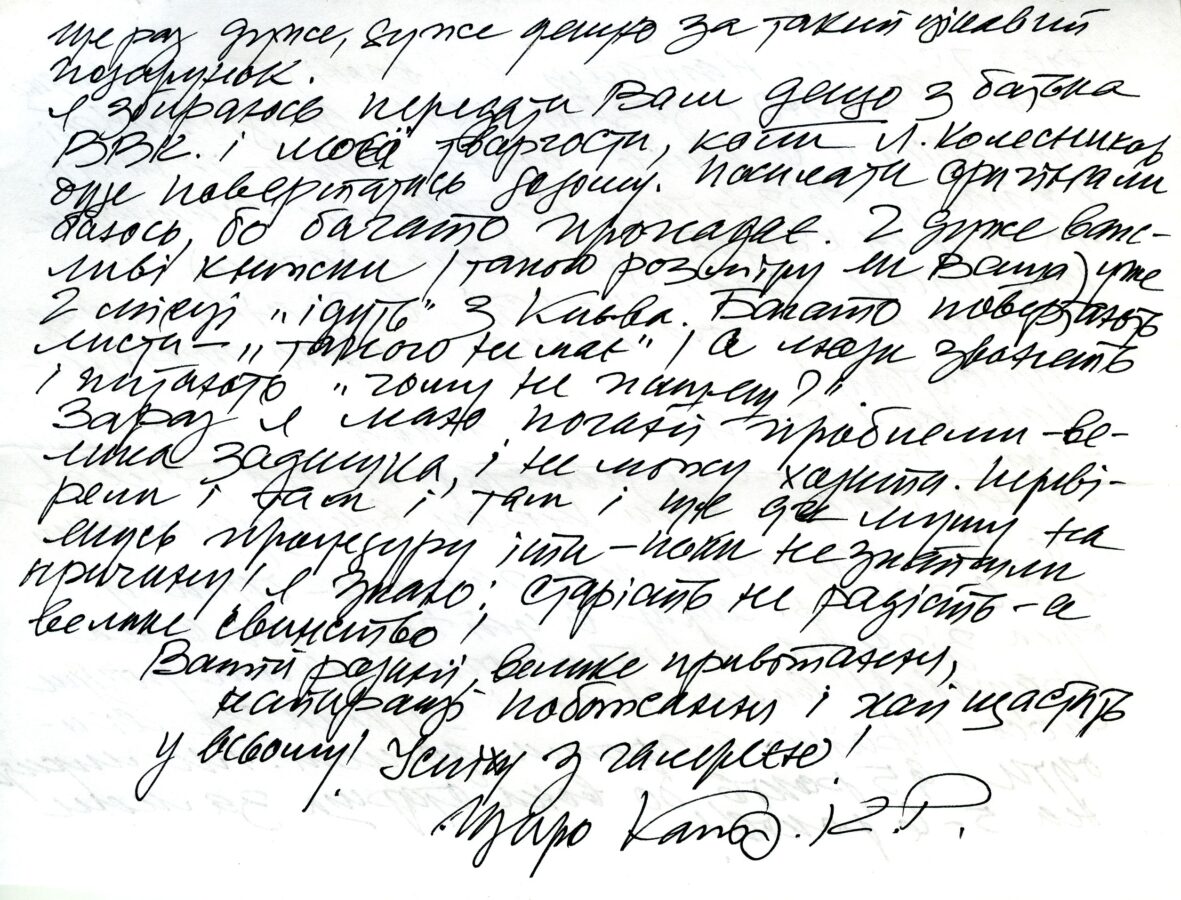 Ще раз дуже, дуже дякую за такий цікавий
подарунок.
Я збираюсь передати Вам дещо з батька
ВВК. і моєї творчости, коли Л. Колесников
буде повертатись додому. Посилати оригінали
боюсь, бо багато пропадає. 2 дуже важ-
ливі книжки (такого розміру як Ваша) уже
2 місяці „ідуть" з Києва. Багато повертають
листи – „такого немає"! А люди дзвонять
і питають „чому не пишеш?".
Зараз я маю погані проблеми – ве-
лика задишка, і не можу ходити. Переві-
рели і там і там і ще де мушу на
якусь процедуру іти – поки не знайшли
причину! Я знаю: старість не радість – а
велике свинство!
Вашій родині велике привітання,
найкращі побажання і хай щастить
у всьому! Успіху з галереєю!
Щиро К.Р.